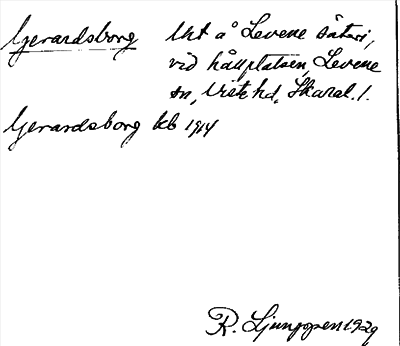 Gerardsborg Uht å Levene säteri,
vid hållplatsen, Levene
sn, Viste hd, Skarab. l.
Gerardsborg kb 1914
R. Ljunggren 1929